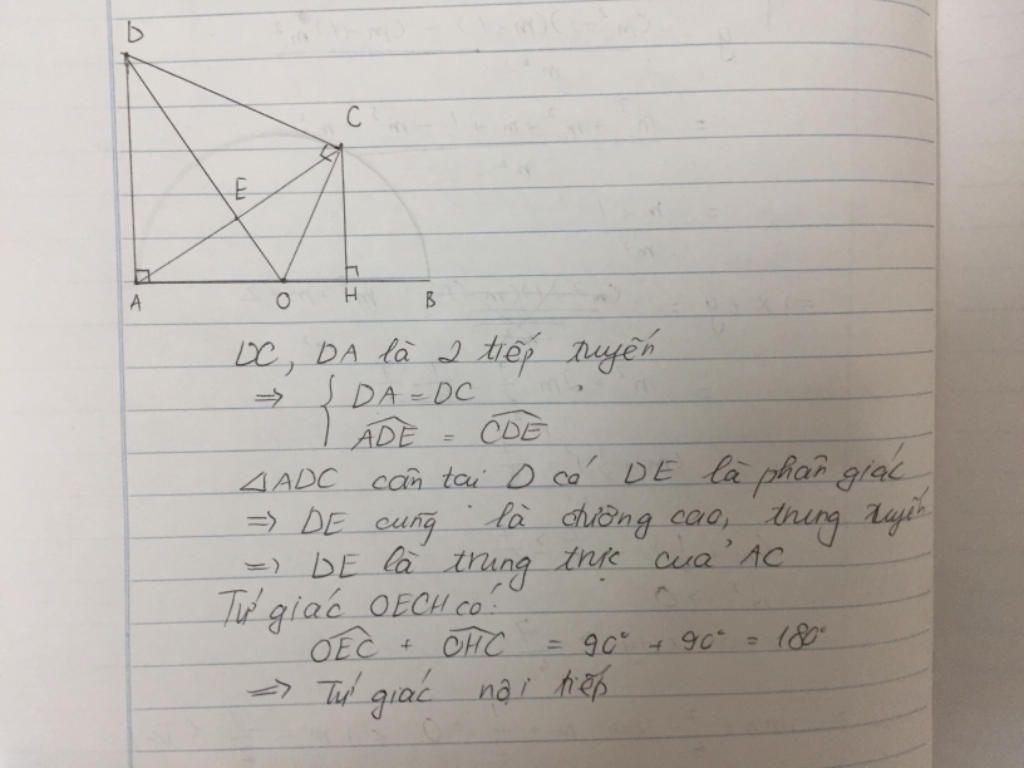 D
C
E
A O H B
DC, DA là 2 tiếp tuyến
⇒ { DA = DC
ADE = CDE
△ADC cân tai D có DE là phân giác
⇒ DE cung là đường cao, trung tuyến
⇒ DE là trung trực cua AC
Tứ giác OECH có:
OEC + OHC = 90° + 90° = 180°
⇒ Tứ giác nội tiếp